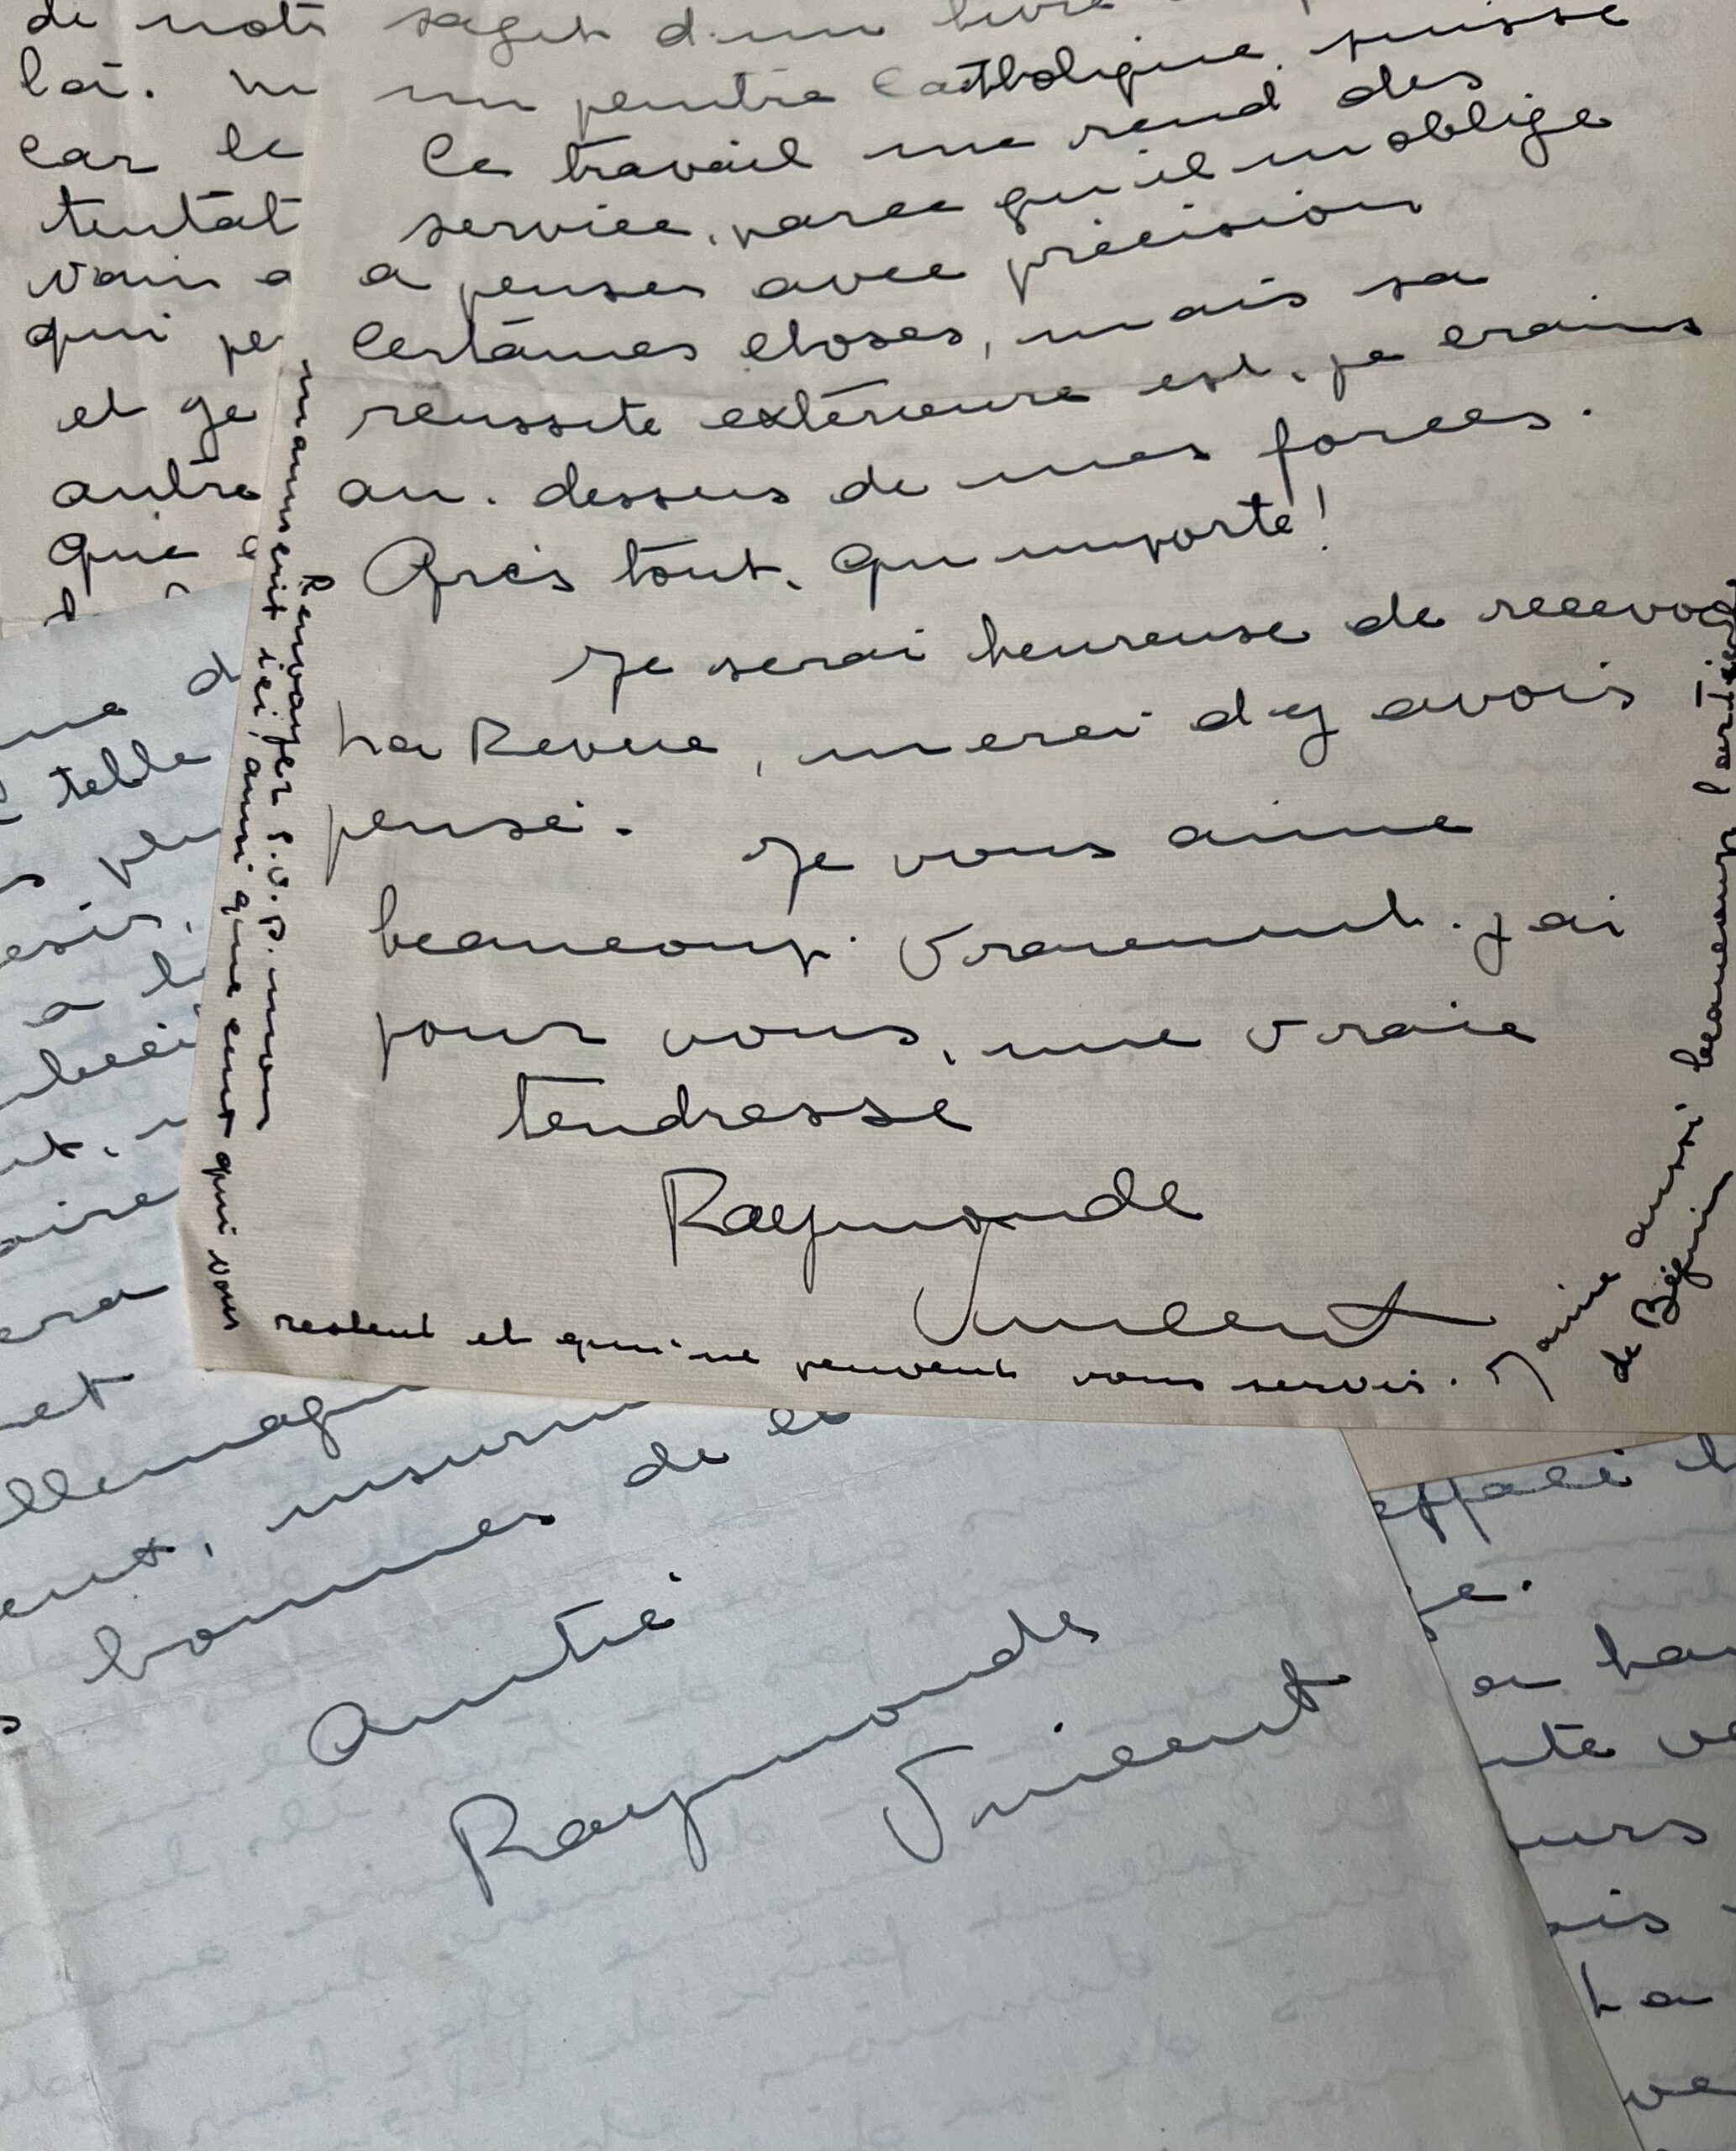 de notre
loi.
car le
tentat
vain a
qui pe
et ge
autre
que
sagit d'un livre
un peintre catholique, puisse
Ce travail me rend des
service, parce qu'il m'oblige
a penser avec précision
certaines choses, mais sa
reussite extérieure est, je crains
au-dessus de mes forces.
Après tout, qu'importe!
Je serai heureuse de recevoir
La Revue, merci d'y avoir
pensé. Je vous aime
beaucoup. Vraiment. J'ai
pour vous, une vraie
tendresse
Raymonde
Vincent
Renvoyer s.v.p. mon
manuscrit ici, ainsi que ceux qui vous
restent et qui ne peuvent vous servir. J'aime aussi beaucoup l'article
de Béguin
telle
a l
aire
era
et
llemagn
ent, insurm
bonnes de et
amitié
Raymonde
Vincent
effacé
ge.
en hau
nte ve
urs
ais
La
ve